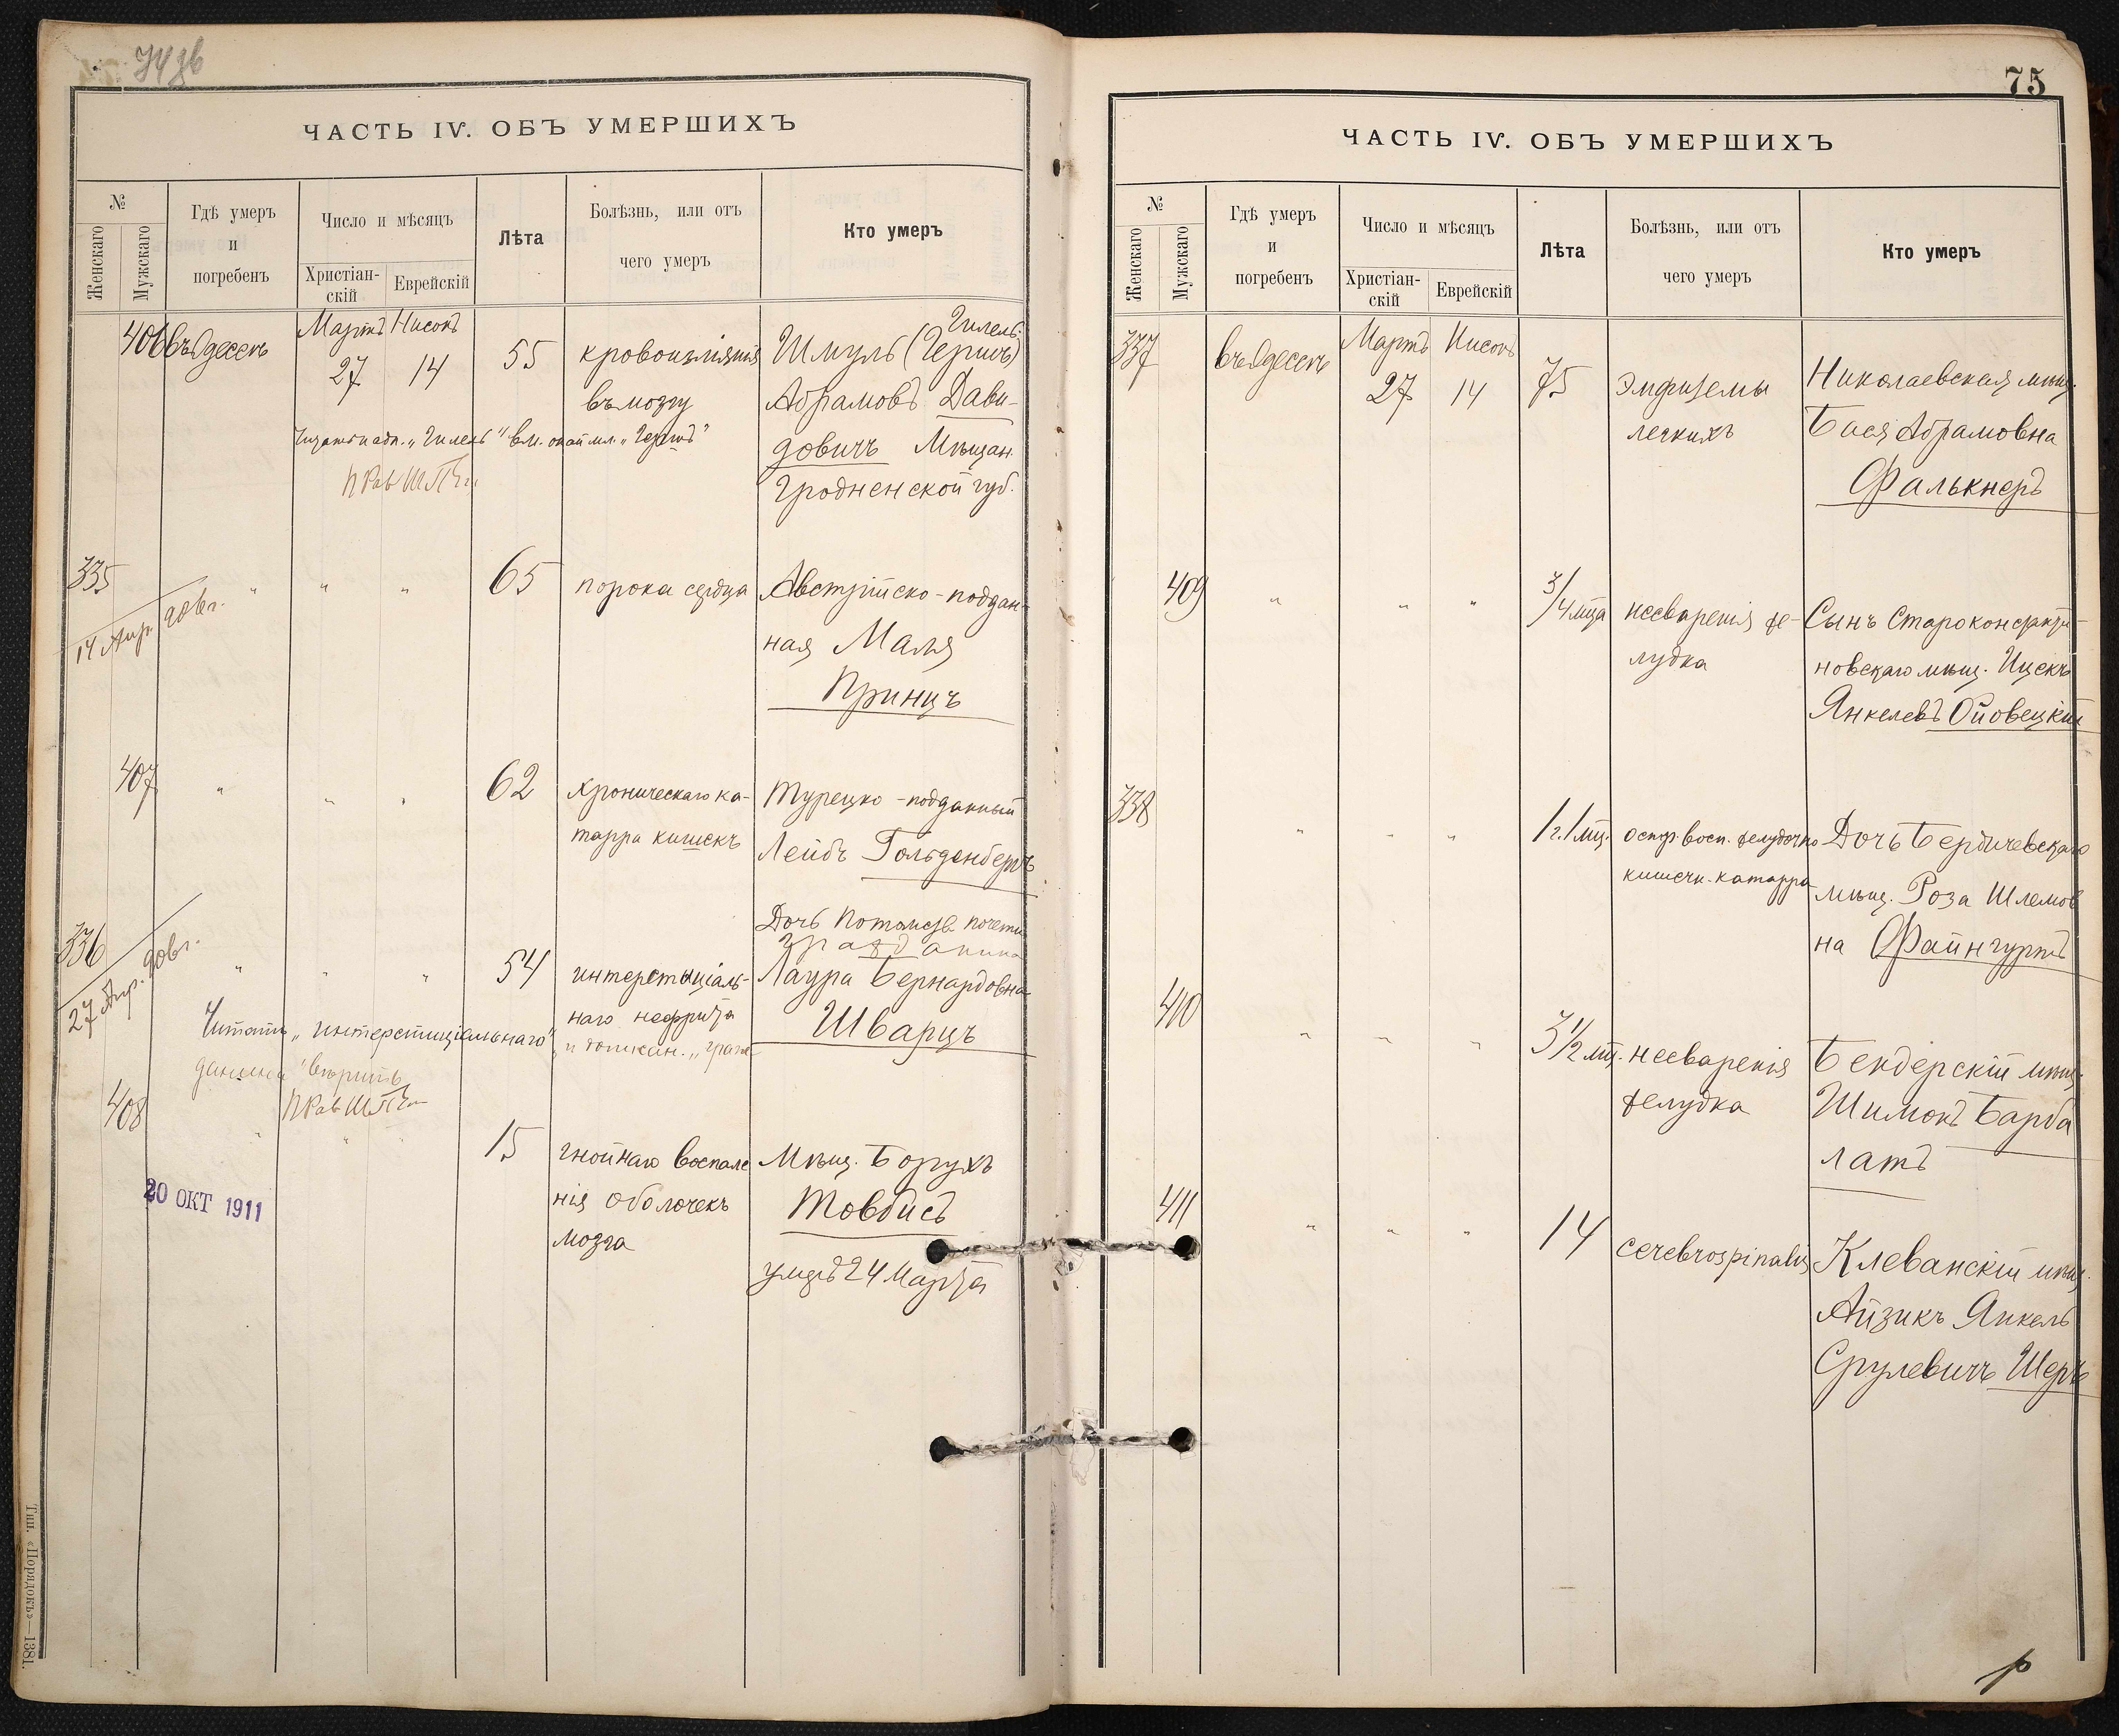 74 об
ЧАСТЬ IV. ОБЪ УМЕРШИХЪ
№
Женскаго
Мужскаго
Гдѣ умеръ
и
погребенъ
Число и мѣсяцъ
Христіан-
скій
Еврейскій
Лѣта
Болѣзнь, или отъ
чего умеръ
Кто умеръ
406 въ Одессѣ Мартъ Нисонъ 55 кровоизліянія Шмуль (Гершъ) Гилель
27 14
въ мозгу Абрамовъ Дави-
довичъ Мѣщан.
Гродненской губ.
„Гилель" вм. „Гершъ"
335 " " " 65 порока сердца Австрійско-поддан-
14 Апр. 906 г.
ная Маля
Принцъ
407 " " " 62 хроническаго ка- Турецко-подданный
тарра кишекъ Лейбъ Гольденбергъ
336 Дочь Потомств. почетн.
гражданина
27 Апр. 906 г. " " " 54 интерстиціаль- Лаура Бернардовна
наго нефрита Шварцъ
Читать „интерстиціальнаго"
и „граж-
данина" вѣрить
408 " " " 15 гнойнаго воспале Мѣщ. Борухъ
нія оболочекъ Товбисъ
мозга
умеръ 24 Марта
20 ОКТ 1911
Тип. «Порядокъ»—1381.
75
ЧАСТЬ IV. ОБЪ УМЕРШИХЪ
№
Женскаго
Мужскаго
Гдѣ умеръ
и
погребенъ
Число и мѣсяцъ
Христіан-
скій
Еврейскій
Лѣта
Болѣзнь, или отъ
чего умеръ
Кто умеръ
337 въ Одессѣ Мартъ Нисонъ
27 14 75 Эмфиземы Николаевская мѣщ.
легкихъ Бася Абрамовна
Фалькнеръ
409 " " " 3/4 мца несваренія же- Сынъ Староконстанти-
лудка новскаго мѣщ. Ицекъ
Янкелевъ Ойовецкій
338 " " " 1 г. 1 мц. остр. восп. желудочно Дочь Бердичевскаго
кишечн. катарра мѣщ. Роза Шлемов
на Файнгуртъ
410 " " " 3 1/2 мц. несваренія Бендерскій мѣщ.
желудка Шимонъ Барба
латъ
411 " " " 14 cerebrospinalis Клеванскій мѣщ.
Айзикъ Янкель
Срулевичъ Шеръ